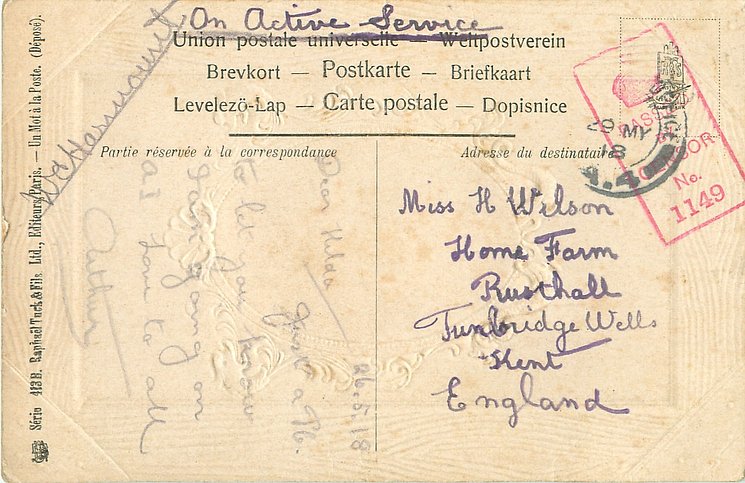 On Active Service
Union postale universelle — Weltpostverein
Brevkort — Postkarte — Briefkaart
Levelezö-Lap — Carte postale — Dopisnice
Partie réservée à la correspondance
Adresse du destinataire
Miss H Wilson
Home Farm
Rusthall
Tunbridge Wells
Kent
England
PASSED
CENSOR
No.
1149
29 MY
18
A.4
26.5.18
Dear Hilda
Just a
to let you know
I am going on
as I
Love to all
Arthur
Série 413B. Raphaël Tuck & Fils, Ltd., Editeurs, Paris. — Un Mot à la Poste. (Déposé).